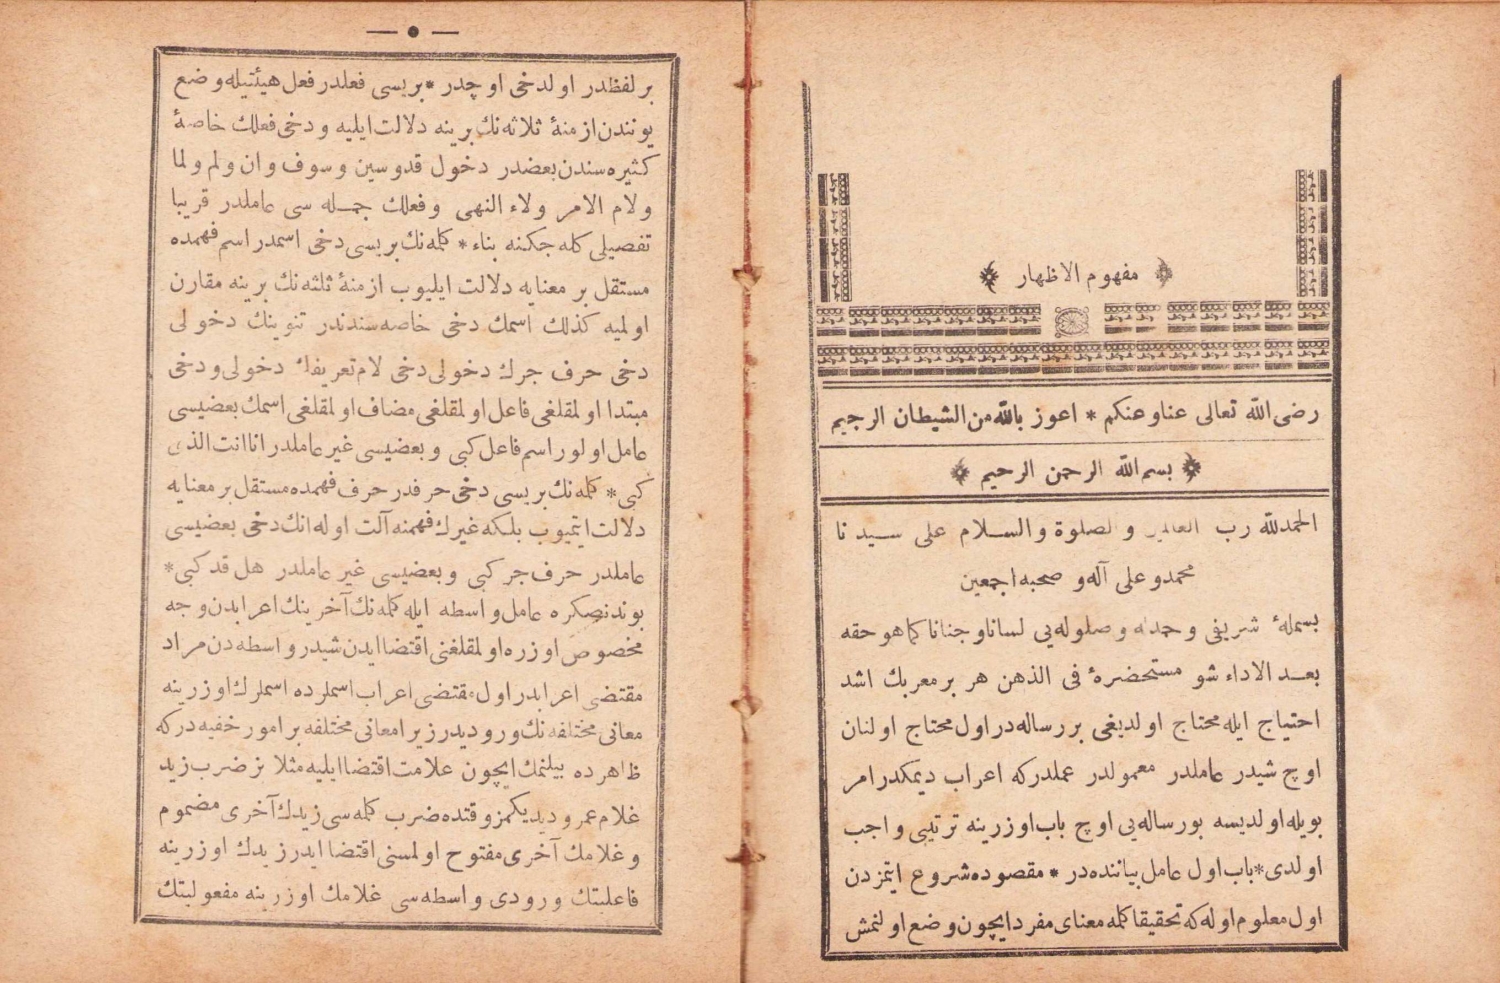 مفهوم الاظهار
رضى الله تعالى عنا وعنكم * اعوز بالله من الشيطان الرجيم
بسم الله الرحمن الرحيم
الحمدلله رب العالمين والصلوة والسلام على سيدنا
محمد وعلى آله وصحبه اجمعين
بسملهٔ شريفى وحمدله وصلوله يى لسانا وجنانا كما هو حقه
بعد الاداء شو مستحضرهٔ فى الذهن هر بر معربك اشد
احتياج ايله محتاج اولديغى بر رساله در اول محتاج اولنان
اوچ شيدر عاملدر معمولدر عملدركه اعراب ديمكدر امر
بويله اولديسه بورساله يى اوچ باب اوزرينه ترتيبى واجب
اولدى * باب اول عامل بياننده در * مقصوده شروع ايتمزدن
اول معلوم اوله كه تحقيقا كلمه معناى مفرد ايچون وضع اولنمش
بر لفظدر اولدخى اوچدر * بريسى فعلدر فعل هيئتيله وضع
يونندن ازمنهٔ ثلاثه نك برينه دلالت ايليه ودخى فعلك خاصهٔ
كثيره سندن بعضدر دخول قد وسين وسوف وان ولم ولما
ولام الامر ولاء النهى وفعلك جمله سى عاملدر قريبا
تفصيلى كله جكنه بناء * كلمه نك بريسى دخى اسمدر اسم فهمده
مستقل بر معنايه دلالت ايليوب ازمنهٔ ثلثه نك برينه مقارن
اولميه كذلك اسمك دخى خاصه سندندر تنوينك دخولى
دخى حرف جرك دخولى دخى لام تعريفك دخولى ودخى
مبتدا اولمقلغى فاعل اولمقلغى مضاف اولمقلغى اسمك بعضيسى
عامل اولور اسم فاعل كبى وبعضيسى غير عاملدر انا انت الذى
كبى * كلمه نك بريسى دخى حرفدر حرف فهمده مستقل بر معنايه
دلالت ايتميوب بلكه غيرك فهمنه آلت اوله انك دخى بعضيسى
عاملدر حرف جر كبى وبعضيسى غير عاملدر هل قد كبى *
بوندنصكره عامل واسطه ايله كلمه نك آخرينك اعرابدن وجه
مخصوص اوزره اولمقلغنى اقتضا ايدن شيدر واسطه دن مراد
مقتضى اعرابدر اول مقتضى اعراب اسملرده اسملرك اوزرينه
معانى مختلفه نك وروديدر زيرا معانى مختلفه بر امور خفيه دركه
ظاهرده بيلنمك ايچون علامت اقتضا ايليه مثلا بز ضرب زيد
غلام عمرو ديديكمز وقتده ضرب كلمه سى زيدك آخرى مضموم
وغلامك آخرى مفتوح اولمسنى اقتضا ايدر زيدك اوزرينه
فاعليتك ورودى واسطه سى غلامك اوزرينه مفعوليتك